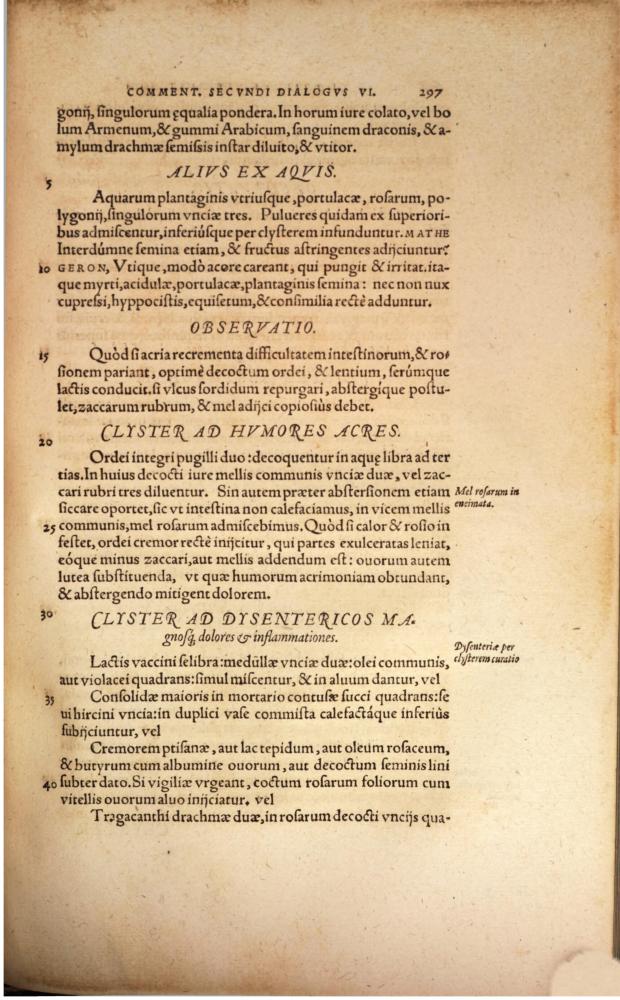 COMMENT. SECVNDI DIALOGVS VI. 297
gonij, singulorum ęqualia pondera. In horum iure colato, vel bo
lum Armenum, & gummi Arabicum, sanguinem draconis, & a-
mylum drachmæ semissis instar diluito, & vtitor.
ALIVS EX AQVIS.
5
Aquarum plantaginis vtriusque, portulacæ, rosarum, po-
lygonij, singulorum vnciæ tres. Pulueres quidam ex superiori-
bus admiscentur, inferiúsque per clysterem infunduntur. MATHE
Interdúmne semina etiam, & fructus astringentes adijciuntur?
10 GERON, Vtique, modò acore careant, qui pungit & irritat. ita-
que myrti, acidulæ, portulacæ, plantaginis semina: nec non nux
cupressi, hyppocistis, equisetum, & consimilia rectè adduntur.
OBSERVATIO.
15 Quòd si acria recrementa difficultatem intestinorum, & ro-
sionem pariant, optimè decoctum ordei, & lentium, serúmque
lactis conducit. si vlcus sordidum repurgari, abstergíque postu-
let, zaccarum rubrum, & mel adijci copiosiùs debet.
CLYSTER AD HVMORES ACRES.
20
Ordei integri pugilli duo: decoquentur in aquę libra ad ter
tias. In huius decocti iure mellis communis vnciæ duæ, vel zac-
cari rubri tres diluentur. Sin autem præter abstersionem etiam
Mel rosarum in
siccare oportet, sic vt intestina non calefaciamus, in vicem mellis
enemata.
25 communis, mel rosarum admiscebimus. Quòd si calor & rosio in
festet, ordei cremor rectè inijcitur, qui partes exulceratas leniat,
eóque minus zaccari, aut mellis addendum est: ouorum autem
lutea substituenda, vt quæ humorum acrimoniam obtundant,
& abstergendo mitigent dolorem.
30 CLYSTER AD DYSENTERICOS MA-
gnosq́; dolores & inflammationes.
Dysenteriæ per
clysterem curatio
Lactis vaccini selibra: medullæ vnciæ duæ: olei communis,
aut violacei quadrans: simul miscentur, & in aluum dantur, vel
35 Consolidæ maioris in mortario contusæ succi quadrans: se
ui hircini vncia: in duplici vase commista calefactáque inferiùs
subijciuntur, vel
Cremorem ptisanæ, aut lac tepidum, aut oleum rosaceum,
& butyrum cum albumine ouorum, aut decoctum seminis lini
40 subter dato. Si vigiliæ vrgeant, coctum rosarum foliorum cum
vitellis ouorum aluo inijciatur. vel
Tragacanthi drachmæ duæ, in rosarum decocti vncijs qua-